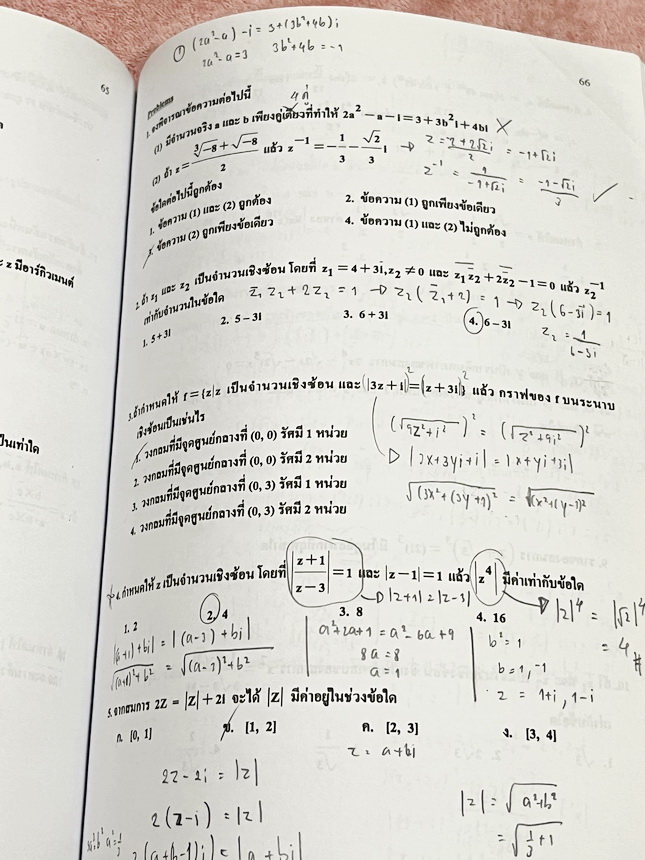 ① (2a²-a) - i = 3+(3b²+4b)i
2a²-a = 3 3b²+4b = -1
65
66
Problems
1. จงพิจารณาข้อความต่อไปนี้
4 คู่
(1) มีจำนวนจริง a และ b เพียงคู่เดียวที่ทำให้ 2a² - a - i = 3 + 3b²i + 4bi X
(2) ถ้า z = (∛-8 + √-8)/2 แล้ว z⁻¹ = -1/3 - (√2/3)i
= -1+√2i
z⁻¹ = 1/(-1+√2i) = (-1-√2i)/3 ✓
ข้อใดต่อไปนี้ถูกต้อง
1. ข้อความ (1) และ (2) ถูกต้อง 2. ข้อความ (1) ถูกเพียงข้อเดียว
3. ข้อความ (2) ถูกเพียงข้อเดียว 4. ข้อความ (1) และ (2) ไม่ถูกต้อง
z มีอาร์กิวเมนต์
2. ถ้า z₁ และ z₂ เป็นจำนวนเชิงซ้อน โดยที่ z₁ = 4 + 3i, z₂ ≠ 0 และ z̄₁z̄₂ + 2z̄₂ - 1 = 0 แล้ว z₂⁻¹
เท่ากับจำนวนในข้อใด z̄₁z₂ + 2z₂ = 1 → z₂(z̄₁+2) = 1 → z₂(6-3i) = 1
1. 5 + 3i 2. 5 - 3i 3. 6 + 3i 4. 6 - 3i
z₂ = 1/(6-3i)
3. ถ้ากำหนดให้ f = {z|z เป็นจำนวนเชิงซ้อน และ |3z + i|² = |z + 3i|²} แล้ว กราฟของ f บนระนาบ
เชิงซ้อนเป็นเช่นไร
(√9z²+i²)² = (√z²+9i²)²
1. วงกลมที่มีจุดศูนย์กลางที่ (0, 0) รัศมี 1 หน่วย
|3x+3yi+i| = |x+yi+3i|
2. วงกลมที่มีจุดศูนย์กลางที่ (0, 0) รัศมี 2 หน่วย
3. วงกลมที่มีจุดศูนย์กลางที่ (0, 3) รัศมี 1 หน่วย
4. วงกลมที่มีจุดศูนย์กลางที่ (0, 3) รัศมี 2 หน่วย
4. กำหนดให้ z เป็นจำนวนเชิงซ้อน โดยที่ |(z + 1)/(z - 3)| = 1 และ |z - 1| = 1 แล้ว |z⁴| มีค่าเท่ากับข้อใด
→ |z+1| = |z-3|
1. 2 2. 4 3. 8 4. 16
|z|⁴ = |√2|⁴
= 4 #
|(a+1)+bi| = |(a-3)+bi|
√(a+1)²+b² = √(a-3)²+b²
a²+2a+1 = a²-6a+9
8a = 8
a = 1
b² = 1
b = 1, -1
z = 1+i, 1-i
5. จากสมการ 2Z = |Z| + 2i จะได้ |Z| มีค่าอยู่ในช่วงข้อใด
ก. [0, 1] ข. [1, 2] ค. [2, 3] ง. [3, 4]
z = a+bi
2z - 2i = |z|
2(z-i) = |z|
|z| = √a²+b²
= √1/3+1